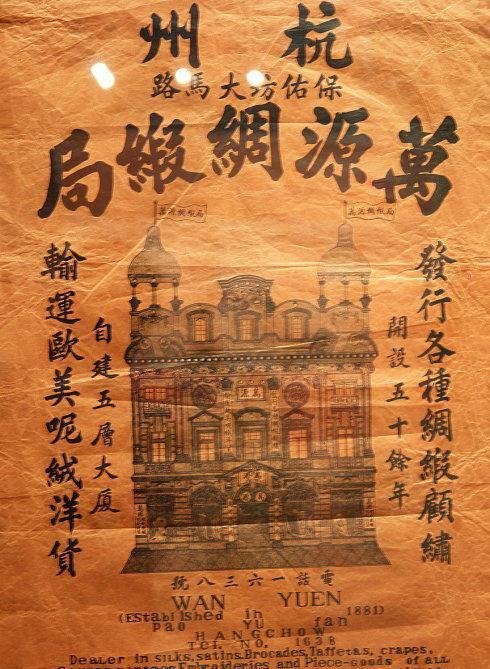 杭州
保佑坊大馬路
萬源綢緞局
萬源綢緞局
萬源綢緞局
發行各種綢緞顧繡
開設五十餘年
自建五層大廈
輸運歐美呢絨洋貨
電話一六三八號
WAN YUEN
(EStablished in 1881)
PaO YU fan
HANGCHOW
Tel. NO. 1638
Dealer in SILKS,satins,Brocades,Taffetas, crapes,
Embroideries and Piece-goods of all